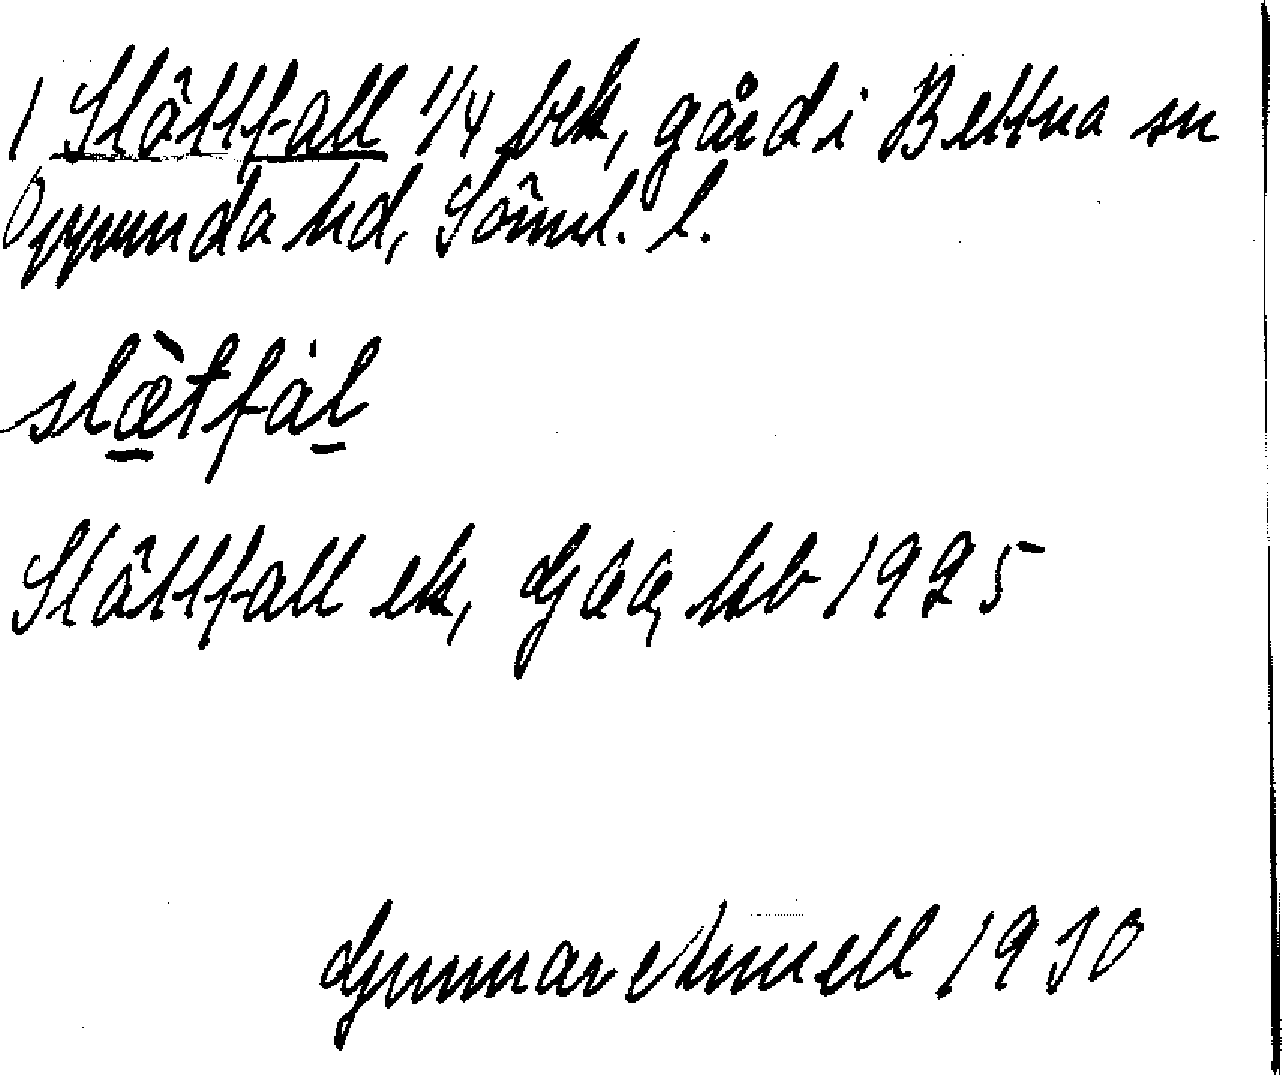 1 Slättfall 1/4 bek, gård i Bettna sn
Oppunda hd, Söml. l.
slæ̀tfàl
Slättfall ek, GEA, hb 1925
Gunnar Amnell 1930